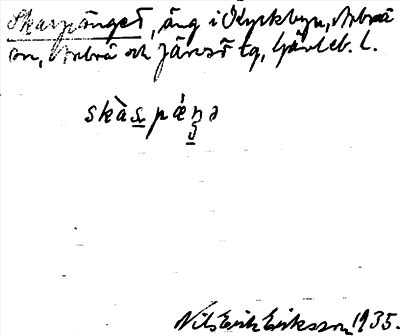 Skarpänget, äng i Flyckbyn, Arbrå
sn, Arbrå och Järvsö tg, Gävleb. l.
skàs pǽŋə
Nils Erik Eriksson 1935.